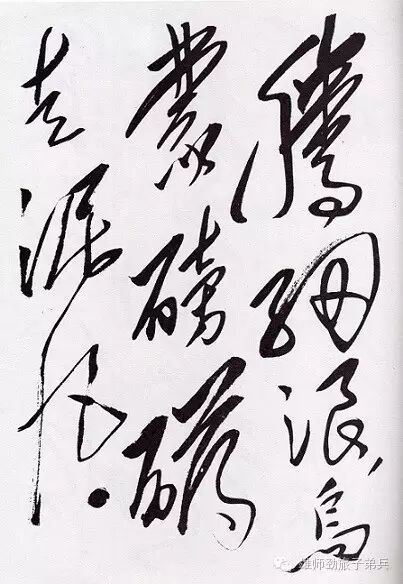 騰細浪，烏
蒙磅礴
走泥丸。
雄师劲旅子弟兵